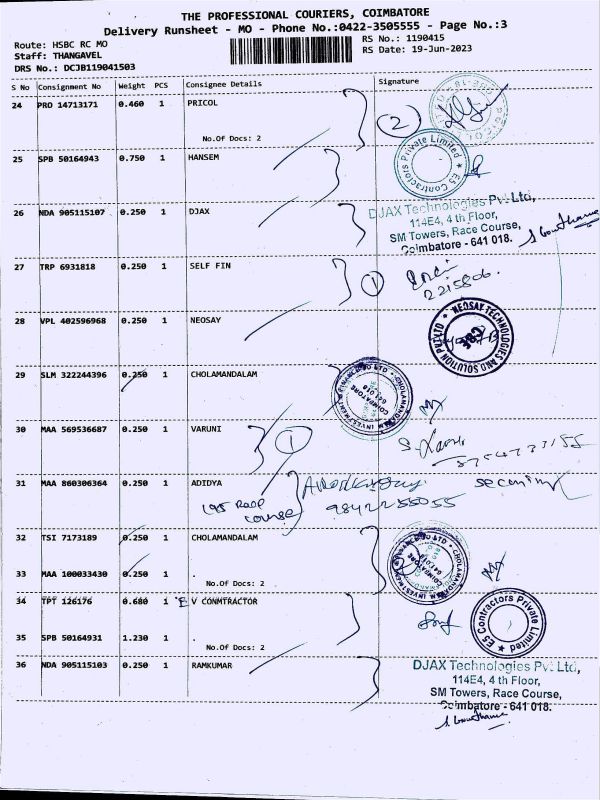 THE PROFESSIONAL COURIERS, COIMBATORE
Delivery Runsheet - MO - Phone No.:0422-3505555 - Page No.:3
Route: HSBC RC MO RS No.: 1190415
Staff: THANGAVEL RS Date: 19-Jun-2023
DRS No.: DCJB119041503
S No Consignment No Weight PCS Consignee Details Signature
24 PRO 14713171 0.460 1 PRICOL
No.Of Docs: 2 2
25 SPB 50164943 0.750 1 HANSEM
ES Contractors Private Limited
26 NDA 905115107 0.250 1 DJAX
DJAX Technologies Pvt Ltd,
114E4, 4 th Floor,
SM Towers, Race Course,
Coimbatore - 641 018.
27 TRP 6931818 0.250 1 SELF FIN 1
2215806.
28 VPL 402596968 0.250 1 NEOSAY
NEOSAY TECHNOLOGIES AND SOLUTION PVT LTD CBE
29 SLM 322244396 0.250 1 CHOLAMANDALAM
CHOLAMANDALAM INVESTMENT & FINANCE CO LTD COIMBATORE 641 018
30 MAA 569536687 0.250 1 VARUNI 1
31 MAA 860306364 0.250 1 ADIDYA
195 Race
course 9842255055
32 TSI 7173189 0.250 1 CHOLAMANDALAM
33 MAA 100033430 0.250 1 .
No.Of Docs: 2
34 TPT 126176 0.680 1 E V CONMTRACTOR
ES Contractors Private Limited
35 SPB 50164931 1.230 1 .
No.Of Docs: 2
36 NDA 905115103 0.250 1 RAMKUMAR
DJAX Technologies Pvt Ltd,
114E4, 4 th Floor,
SM Towers, Race Course,
Coimbatore - 641 018.